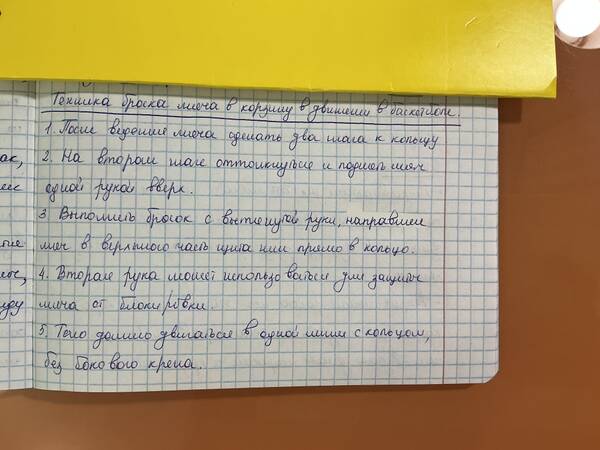 Техника броска мяча в корзину в движении в баскетболе.
1. После ведения мяча сделать два шага к кольцу
2. На втором шаге оттолкнуться и поднять мяч
одной рукой вверх.
3 Выполнить бросок с вытянутой руки, направляя
мяч в верхнюю часть щита или прямо в кольцо.
4. Вторая рука может использоваться для защиты
мяча от блокировки.
5. Тело должно двигаться в одной линии с кольцом,
без бокового крена.